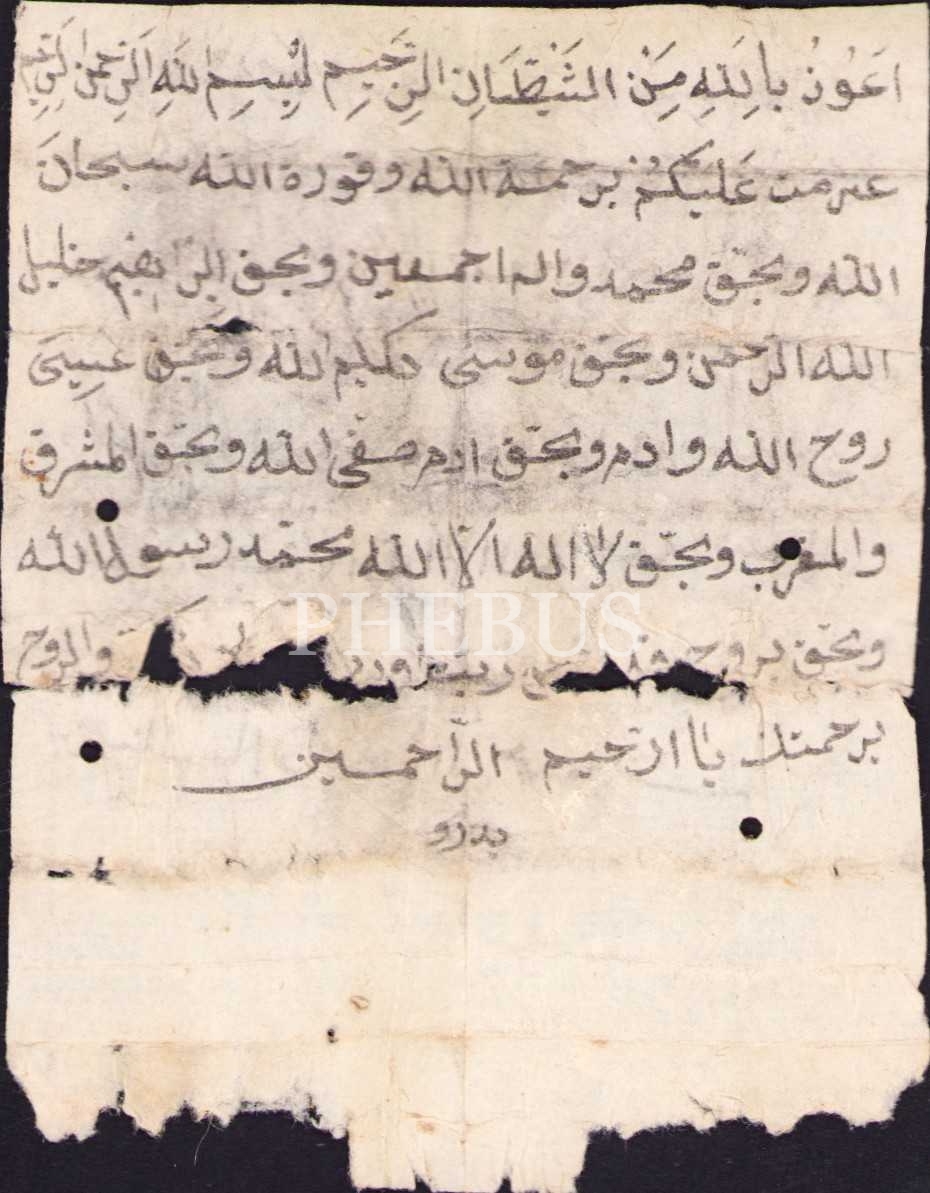 اَعُوذُ بِاللّٰهِ مِنَ الشَّيْطَانِ الرَّجِيمِ بِسْمِ اللّٰهِ الرَّحْمٰنِ الرَّحِيمِ
عزمت عَلَيْكُمْ برحمة الله وقورة الله سبحان
الله وبحقّ محمد واله اجمعين وبحق ابراهيم خليل
الله الرحمن وبحق موسى كليم الله وبحق عيسى
روح الله وادم وبحقّ ادم صفى الله وبحقّ المشرق
والمغرب وبحقّ لا اله الا الله محمّد رسول الله
وبحقّ بروح والروح
برحمتك يا ارحيم الرّاحمين
بدرو
PHEBUS